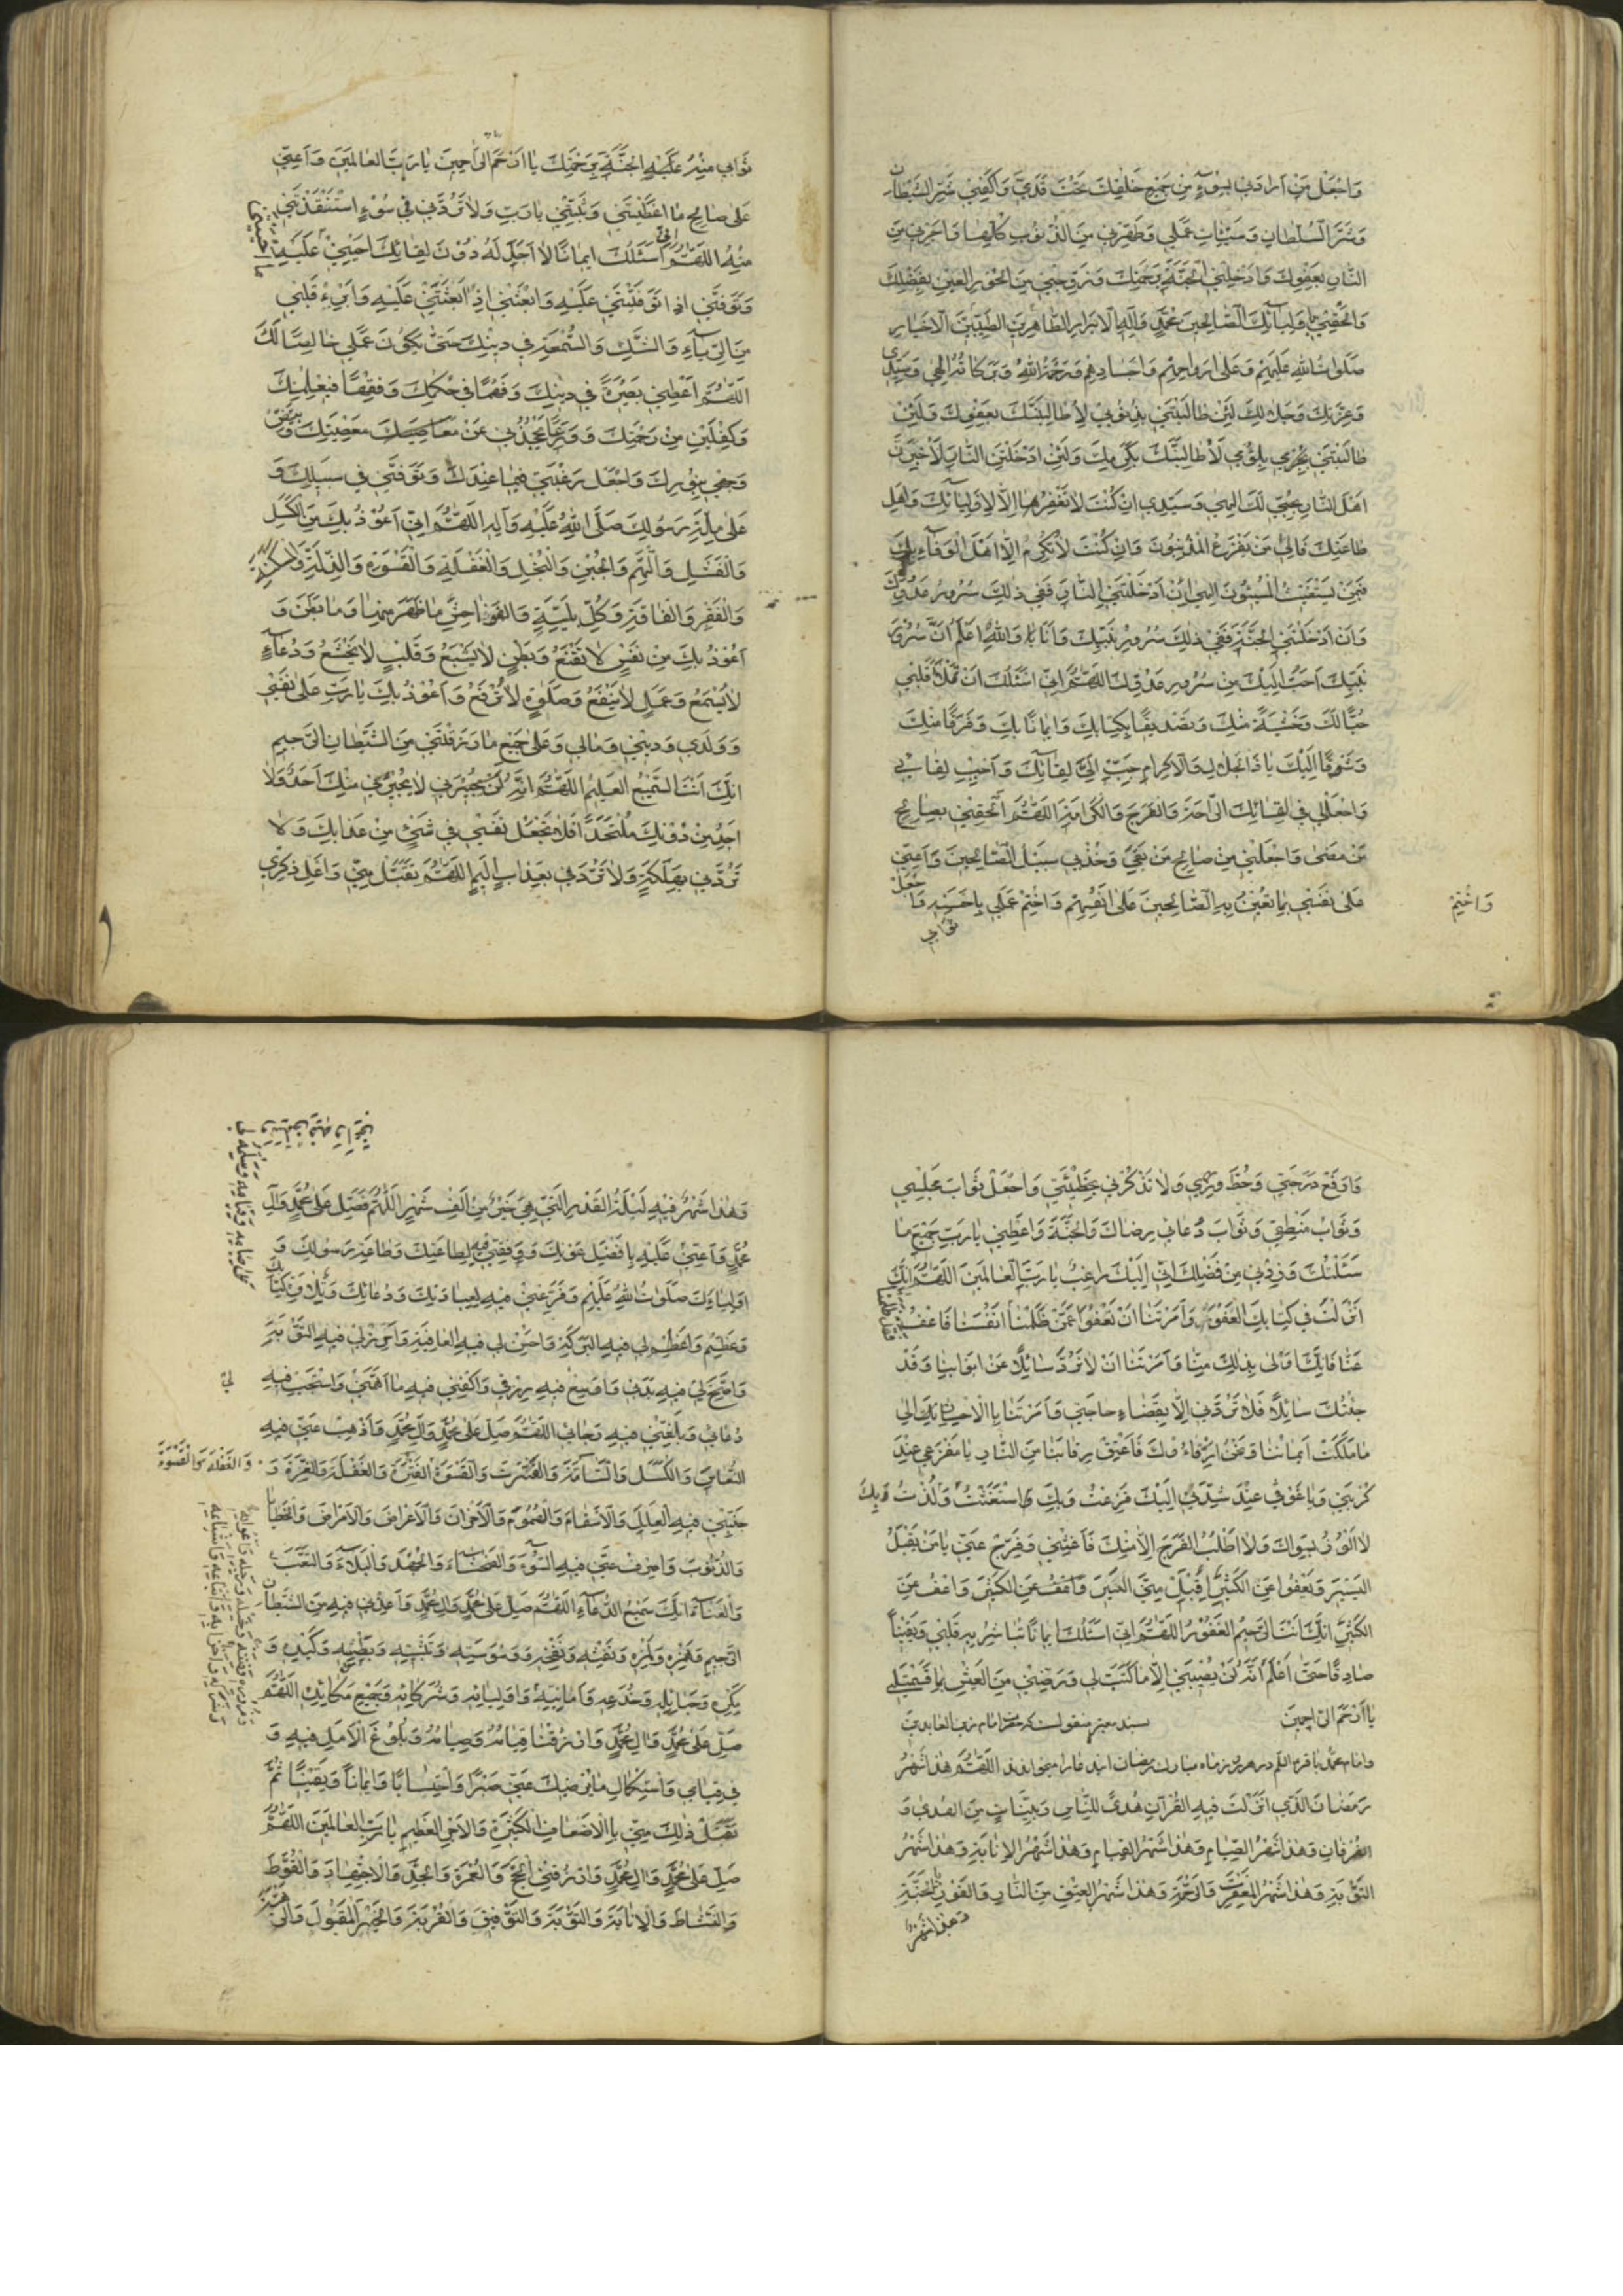 وَاجْعَلْ مَنْ اَرادَنی بِسُوۤءٍ مِنْ جَمیعِ خَلْقِكَ تَحْتَ قَدَمَیَّ وَاكْفِنی شَرَّ الشَّیْطانِ
وَشَرَّ السُّلْطانِ وَسَیِّئاتِ عَمَلی وَطَهِّرْنی مِنَ الذُّنُوبِ كُلِّها وَاَجِرْنی مِنَ
النّارِ بِعَفْوِكَ وَاَدْخِلْنِی الْجَنَّةَ بِرَحْمَتِكَ وَزَوِّجْنی مِنَ الْحُورِ الْعینِ بِفَضْلِكَ
وَاَلْحِقْنی بِاَوْلِیاۤئِكَ الصّالِحینَ مُحَمَّدٍ وَالِهِ الْاَبْرارِ الطّاهِرینَ الطَّیِّبینَ الْاَخْیارِ
صَلَواتُ اللهِ عَلَیْهِمْ وَعَلی اَرْواحِهِمْ وَاَجْسادِهِمْ وَرَحْمَةُ اللهِ وَبَرَكاتُهُ اِلهی وَسَیِّدی
وَعِزَّتِكَ وَجَلالِكَ لَئِنْ طالَبْتَنی بِذُنُوبی لَاُطالِبَنَّكَ بِعَفْوِكَ وَلَئِنْ
طالَبْتَنی بِلُؤْمی لَاُطالِبَنَّكَ بِكَرَمِكَ وَلَئِنْ اَدْخَلْتَنِی النّارَ لَاُخْبِرَنَّ
اَهْلَ النّارِ بِحُبّی لَكَ اِلهی وَسَیِّدی اِنْ كُنْتَ لاتَغْفِرُ اِلّا لِاَوْلِیاۤئِكَ وَاَهْلِ
طاعَتِكَ فَاِلی مَنْ یَفْزَعُ الْمُذْنِبُونَ وَاِنْ كُنْتَ لاتُكْرِمُ اِلّا اَهْلَ الْوَفاۤءِ بِكَ
فَبِمَنْ یَسْتَغیثُ الْمُسیئُونَ اِلهی اِنْ اَدْخَلْتَنِی النّارَ فَفی ذلِكَ سُرُورُ عَدُوِّكَ
وَاِنْ اَدْخَلْتَنِی الْجَنَّةَ فَفی ذلِكَ سُرُورُ نَبِیِّكَ وَاَنَا وَاللهِ اَعْلَمُ اَنَّ سُرُورَ
نَبِیِّكَ اَحَبُّ اِلَیْكَ مِنْ سُرُورِ عَدُوِّكَ اَللّهُمَّ اِنّی اَسْئَلُكَ اَنْ تَمْلَأَ قَلْبی
حُبًّا لَكَ وَخَشْیَةً مِنْكَ وَتَصْدیقًا بِكِتابِكَ وَایمانًا بِكَ وَفَرَقًا مِنْكَ
وَشَوْقًا اِلَیْكَ یا ذَا الْجَلالِ وَالْاِكْرامِ حَبِّبْ اِلَیَّ لِقاۤئَكَ وَاَحْبِبْ لِقاۤئی
وَاجْعَلْ لی فی لِقاۤئِكَ الرّاحَةَ وَالْفَرَجَ وَالْكَرامَةَ اَللّهُمَّ اَلْحِقْنی بِصالِحِ
مَنْ مَضی وَاجْعَلْنی مِنْ صالِحِ مَنْ بَقِیَ وَخُذْ بی سَبیلَ الصّالِحینَ وَاَعِنّی
عَلی نَفْسی بِما تُعینُ بِهِ الصّالِحینَ عَلی اَنْفُسِهِمْ وَاخْتِمْ عَمَلی بِاَحْسَنِهِ وَاجْعَلْ
ثَوابی
وَاخْتِمْ
ثَوابی مِنْهُ عَلَیْهِ الْجَنَّةَ بِرَحْمَتِكَ یا اَرْحَمَ الرّاحِمینَ یا رَبَّ الْعالَمینَ وَاَعِنّی
عَلی صالِحِ ما اَعْطَیْتَنی وَثَبِّتْنی یا رَبِّ وَلاتَرُدَّنی فی سُوۤءٍ اسْتَنْقَذْتَنی
مِنْهُ اَللّهُمَّ اِنّی اَسْئَلُكَ ایمانًا لا اَجَلَ لَهُ دُوْنَ لِقاۤئِكَ اَحْیِنی عَلَیْهِ
وَتَوَفَّنی اِذا تَوَفَّیْتَنی عَلَیْهِ وَابْعَثْنی اِذا بَعَثْتَنی عَلَیْهِ وَاَبْرِءْ قَلْبی
مِنَ الرِّیاۤءِ وَالشَّكِّ وَالسُّمْعَةِ فی دینِكَ حَتّی یَكُوْنَ عَمَلی خالِصًا لَكَ
اَللّهُمَّ اَعْطِنی بَصیرَةً فی دینِكَ وَفَهْمًا فی حُكْمِكَ وَفِقْهًا فی عِلْمِكَ
وَكِفْلَیْنِ مِنْ رَحْمَتِكَ وَوَرَعًا یَحْجُزُنی عَنْ مَعْصِیَتِكَ وَبَیِّضْ
وَجْهی بِنُورِكَ وَاجْعَلْ رَغْبَتی فیما عِنْدَكَ وَتَوَفَّنی فی سَبیلِكَ وَ
عَلی مِلَّةِ رَسُولِكَ صَلَّی اللهُ عَلَیْهِ وَآلِهِ اَللّهُمَّ اِنّی اَعُوْذُ بِكَ مِنَ الْكَسَلِ
وَالْفَشَلِ وَالْهَمِّ وَالْجُبْنِ وَالْبُخْلِ وَالْغَفْلَةِ وَالْقَسْوَةِ وَالذِّلَّةِ وَالْمَسْكَنَةِ
وَالْفَقْرِ وَالْفاقَةِ وَكُلِّ بَلِیَّةٍ وَالْفَواحِشِ ما ظَهَرَ مِنْها وَما بَطَنَ وَ
اَعُوْذُ بِكَ مِنْ نَفْسٍ لا تَقْنَعُ وَبَطْنٍ لا یَشْبَعُ وَقَلْبٍ لا یَخْشَعُ وَدُعاۤءٍ
لا یُسْمَعُ وَعَمَلٍ لا یَنْفَعُ وَصَلوةٍ لا تُرْفَعُ وَاَعُوْذُ بِكَ یا رَبِّ عَلی نَفْسی
وَوَلَدی وَدینی وَمالی وَعَلی جَمیعِ ما رَزَقْتَنی مِنَ الشَّیْطانِ الرَّجیمِ
اِنَّكَ اَنْتَ السَّمیعُ الْعَلیمُ اَللّهُمَّ اِنَّهُ لا یُجیرُنی مِنْكَ اَحَدٌ وَلا
اَجِدُ مِنْ دُوْنِكَ مُلْتَحَدًا فَلا تَجْعَلْ نَفْسی فی شَیْءٍ مِنْ عَذابِكَ وَلا
تَرُدَّنی بِهَلَكَةٍ وَلا تَرُدَّنی بِعَذابٍ اَلیمٍ اَللّهُمَّ تَقَبَّلْ مِنّی وَاَعْلِ ذِكْری
وَارْفَعْ دَرَجَتی وَحُطَّ وِزْری وَلا تَذْكُرْنی بِخَطیئَتی وَاجْعَلْ ثَوابَ مَجْلِسی
وَثَوابَ مَنْطِقی وَثَوابَ دُعائی رِضاكَ وَالْجَنَّةَ وَاَعْطِنی یا رَبِّ جَمیعَ ما
سَئَلْتُكَ وَزِدْنی مِنْ فَضْلِكَ اِنّی اِلَیْكَ راغِبٌ یا رَبَّ الْعالَمینَ اَللّهُمَّ اِنَّكَ
اَنْزَلْتَ فی كِتابِكَ الْعَفْوَ وَاَمَرْتَنا اَنْ نَعْفُوَ عَمَّنْ ظَلَمَنا وَقَدْ ظَلَمْنا اَنْفُسَنا فَاعْفُ
عَنّا فَاِنَّكَ اَوْلی بِذلِكَ مِنّا وَاَمَرْتَنا اَنْ لا نَرُدَّ سائِلًا عَنْ اَبْوابِنا وَقَدْ
جِئْتُكَ سائِلًا فَلا تَرُدَّنی اِلّا بِقَضاۤءِ حاجَتی وَاَمَرْتَنا بِالْاِحْسانِ اِلی
ما مَلَكَتْ اَیْمانُنا وَنَحْنُ اَرِقّاۤءُكَ فَاَعْتِقْ رِقابَنا مِنَ النّارِ یا مَفْزَعی عِنْدَ
كُرْبَتی وَیا غَوْثی عِنْدَ شِدَّتی اِلَیْكَ فَزِعْتُ وَبِكَ اسْتَغَثْتُ وَلُذْتُ وَبِكَ
لا اَلُوْذُ بِسِواكَ وَلا اَطْلُبُ الْفَرَجَ اِلّا مِنْكَ فَاَغِثْنی وَفَرِّجْ عَنّی یا مَنْ یَقْبَلُ
الْیَسیرَ وَیَعْفُو عَنِ الْكَثیرِ اِقْبَلْ مِنِّی الْیَسیرَ وَاعْفُ عَنِّی
الْكَثیرَ اِنَّكَ اَنْتَ الرَّحیمُ الْغَفُورُ اَللّهُمَّ اِنّی اَسْئَلُكَ ایمانًا تُباشِرُ بِهِ قَلْبی وَیَقینًا
صادِقًا حَتّی اَعْلَمَ اَنَّهُ لَنْ یُصیبَنی اِلّا ما كَتَبْتَ لی وَرَضِّنی مِنَ الْعَیْشِ بِما قَسَمْتَ لی
یا اَرْحَمَ الرّاحِمینَ بسند معتبر منقولست كه حضرت امام زین العابدین
وامام محمد باقر علیهما السلم در هر روز ماه مبارك رمضان این دعا را میخواندند اَللّهُمَّ هذا شَهْرُ
رَمَضانَ الَّذی اَنْزَلْتَ فیهِ الْقُرْآنَ هُدًی لِلنّاسِ وَبَیِّناتٍ مِنَ الْهُدی وَ
الْفُرْقانِ وَهذا شَهْرُ الصِّیامِ وَهذا شَهْرُ الْقِیامِ وَهذا شَهْرُ الْاِنابَةِ وَهذا شَهْرُ
التَّوْبَةِ وَهذا شَهْرُ الْمَغْفِرَةِ وَالرَّحْمَةِ وَهذا شَهْرُ الْعِتْقِ مِنَ النّارِ وَالْفَوْزِ بِالْجَنَّةِ
وَهذا شَهْرٌ
وَهذا شَهْرٌ فیهِ لَیْلَةُ الْقَدْرِ الَّتی هِیَ خَیْرٌ مِنْ اَلْفِ شَهْرٍ اَللّهُمَّ فَصَلِّ عَلی مُحَمَّدٍ وَآلِ
مُحَمَّدٍ وَاَعِنّی عَلَیْهِ بِاَفْضَلِ عَوْنِكَ وَوَفِّقْنی فیهِ لِطاعَتِكَ وَطاعَةِ رَسُولِكَ وَ
اَوْلِیاۤئِكَ صَلَواتُ اللهِ عَلَیْهِمْ وَفَرِّغْنی فیهِ لِعِبادَتِكَ وَدُعاۤئِكَ وَتِلاوَةِ كِتابِكَ
وَاَعْظِمْ لی فیهِ الْبَرَكَةَ وَاَحْسِنْ لی فیهِ الْعافِیَةَ
دُعاۤئی وَبَلِّغْنی فیهِ رَجاۤئی اَللّهُمَّ صَلِّ عَلی مُحَمَّدٍ وَآلِ مُحَمَّدٍ وَاَذْهِبْ عَنّی فیهِ
النُّعاسَ وَالْكَسَلَ وَالسَّاۤمَةَ وَالْفَتْرَةَ وَالْقَسْوَةَ وَالْغَفْلَةَ وَالْغِرَّةَ وَ
وَالْغَفْلَةَ وَالْقَسْوَةَ
جَنِّبْنی فیهِ الْعِلَلَ وَالْاَسْقامَ وَالْهُمُومَ وَالْاَحْزانَ وَالْاَعْراضَ وَالْاَمْراضَ وَالْخَطایا
وَالذُّنُوبَ وَاصْرِفْ عَنّی فیهِ السُّوۤءَ وَالْفَحْشاۤءَ وَالْجَهْدَ وَالْبَلاۤءَ وَالتَّعَبَ
وَالْعَناۤءَ اِنَّكَ سَمیعُ الدُّعاۤءِ اَللّهُمَّ صَلِّ عَلی مُحَمَّدٍ وَآلِ مُحَمَّدٍ وَاَعِذْنی فیهِ مِنَ الشَّیْطانِ
الرَّجیمِ وَهَمْزِهِ وَلَمْزِهِ وَنَفْثِهِ وَنَفْخِهِ وَوَسْوَسَتِهِ وَتَثْبیطِهِ وَبَطْشِهِ وَكَیْدِهِ وَ
مَكْرِهِ وَحَبائِلِهِ وَخُدَعِهِ وَاَمانِیِّهِ وَاَوْلِیائِهِ وَشُرَكائِهِ وَجَمیعِ مَكائِدِهِ اَللّهُمَّ
صَلِّ عَلی مُحَمَّدٍ وَآلِ مُحَمَّدٍ وَارْزُقْنا قِیامَهُ وَصِیامَهُ وَبُلُوغَ الْاَمَلِ فیهِ وَ
فی قِیامِهِ وَاسْتِكْمالَ ما یُرْضیكَ عَنّی صَبْرًا وَاحْتِسابًا وَایمانًا وَیَقینًا ثُمَّ
تَقَبَّلْ ذلِكَ مِنّی بِالْاَضْعافِ الْكَثیرَةِ وَالْاَجْرِ الْعَظیمِ یا رَبَّ الْعالَمینَ اَللّهُمَّ
صَلِّ عَلی مُحَمَّدٍ وَآلِ مُحَمَّدٍ وَارْزُقْنِی الْحَجَّ وَالْعُمْرَةَ وَالْجِدَّ وَالْاِجْتِهادَ وَالْقُوَّةَ
وَالنَّشاطَ وَالْاِنابَةَ وَالتَّوْبَةَ وَالتَّوْفیقَ وَالْقُرْبَةَ وَالْخَیْرَ الْمَقْبُولَ وَالرَّهْبَةَ